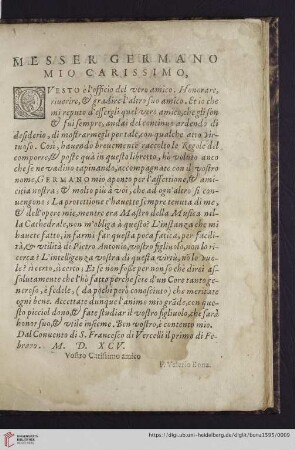 MESSER GERMANO
MIO CARISSIMO,
QVESTO è l'officio del vero amico. Honorare,
riuerire, & gradire l'altro suo amico. Et io che
mi reputo d'essergli quel vero amico, che gli son
& fui sempre, andai del continuo ardendo di
desiderio, di mostrarmegli per tale, con qualche atto vir-
tuoso. Così, hauendo breuemente raccolto le Regole del
comporre, & posto quà in questo libretto, hò voluto anco
che se ne vadino caminando, accompagnate con il vostro
nome, GERMANO mio & per l'affettione, & ami-
citia nostra: & molto più à voi, che ad ogn'altro si con-
uengono: La protettione c'hauete sempre tenuta di me,
& dell'opere mie, mentre era Mastro della Musica nel-
la Cathedrale, non m'obliga à questo? L'instanza che mi
hauete fatto, in farmi far questa poca fatica, per facili-
tà, & vtilità di Pietro Antonio, vostro figliuolo, non lo ri-
cerca? L'intelligenza vostra di questa virtù, nò lo vuo-
le? Et se non fosse per non sò che dirsi as-
solutamente che l'hò fatto perche sete d'un Core tanto ge-
neroso, & fedele, (da pochi però conosciuto) che meritate
ogni bene. Accettate dunque l'animo mio grãde, con que-
sto picciol dono, & fate studiar il vostro figliuolo, che sarà
honor suo, & vtile insieme. Ben vostro, è contento mio.
Dal Conuento di S. Francesco di Vercelli il primo di Fe-
braro. M. D. XCV.
Vostro Carissimo amico
F. Valerio Bona.
UNIVERSITÄTS-
BIBLIOTHEK
HEIDELBERG
https://digi.ub.uni-heidelberg.de/diglit/bona1595/0009